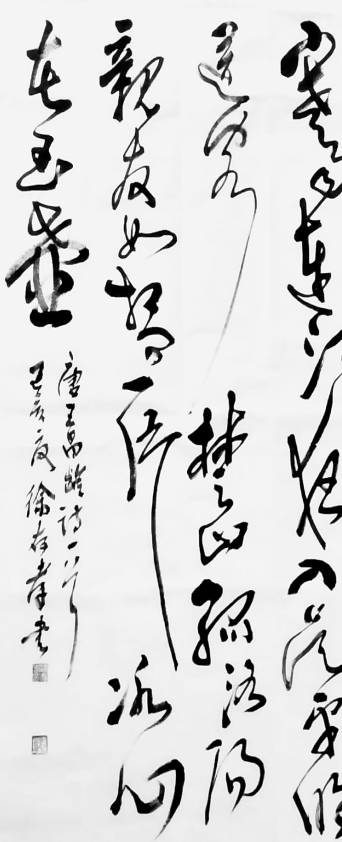 寒雨連江夜入吴平明
送客楚山孤洛陽
親友如相問一片冰心
在玉壺
唐王昌齡詩一首
己亥夏徐存孝書